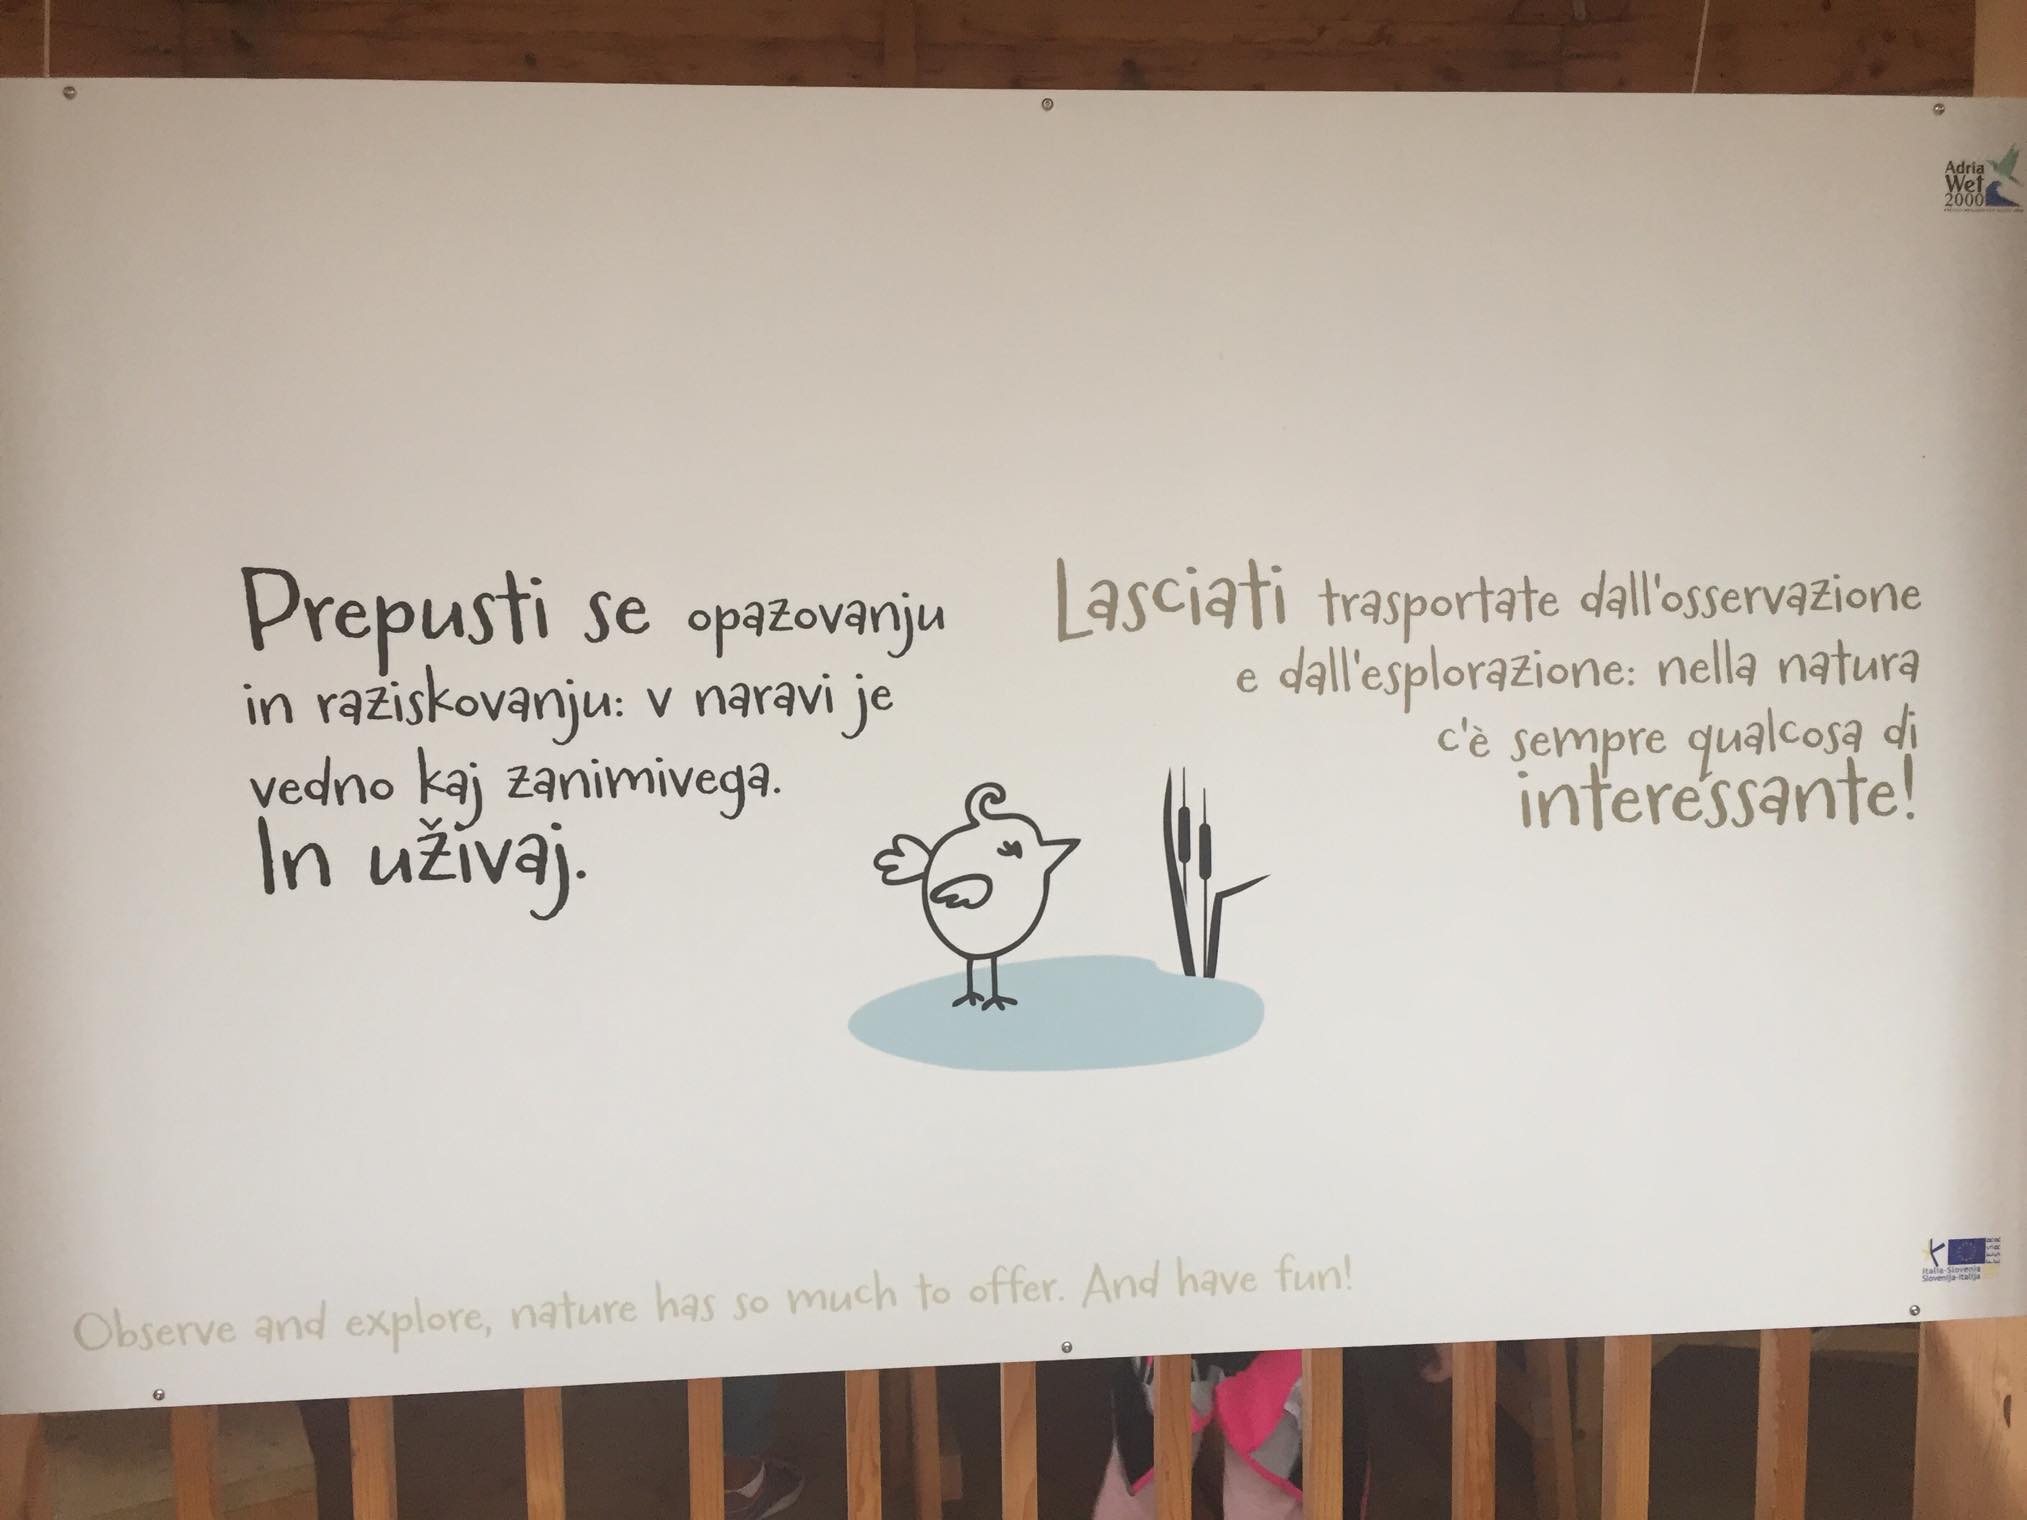 Adria
Wet
2000
Prepusti se opazovanju
in raziskovanju: v naravi je
vedno kaj zanimivega.
In uživaj.
Lasciati trasportate dall'osservazione
e dall'esplorazione: nella natura
c'è sempre qualcosa di
interessante!
Observe and explore, nature has so much to offer. And have fun!
Italia-Slovenia
Slovenija-Italija